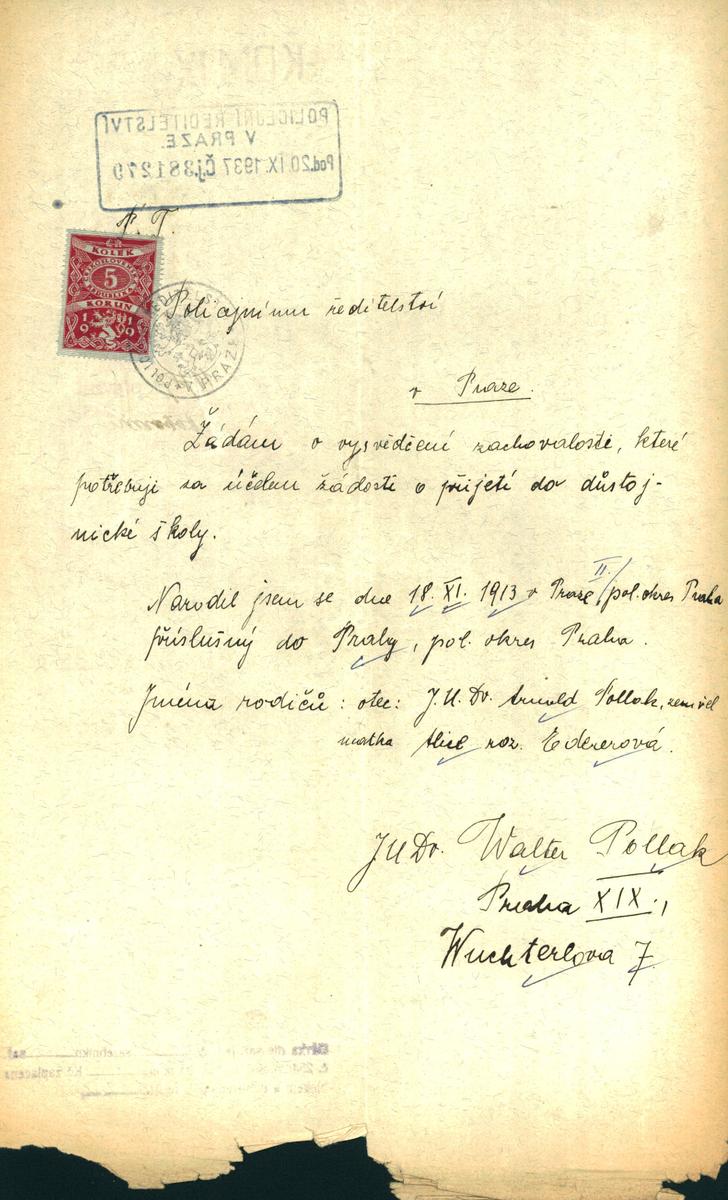 POLICEJNÍ ŘEDITELSTVÍ
V PRAZE.
Pod. 20. IX. 1937 Čj. 381270
KOLEK
5
KORUN
1919
Policejnímu ředitelství
v Praze.
Žádám o vysvědčení zachovalosti, které
potřebuji za účelem žádosti o přijetí do důstoj-
nické školy.
Narodil jsem se dne 18. XI. 1913 v Praze II./ pol. okres Praha
příslušný do Prahy, pol. okres Praha.
Jména rodičů: otec: J.U.Dr. Arnold Pollak,
matka Alice roz. Edererová.
JUDr. Walter Pollak
Praha XIX.,
Wuchterlova 7.